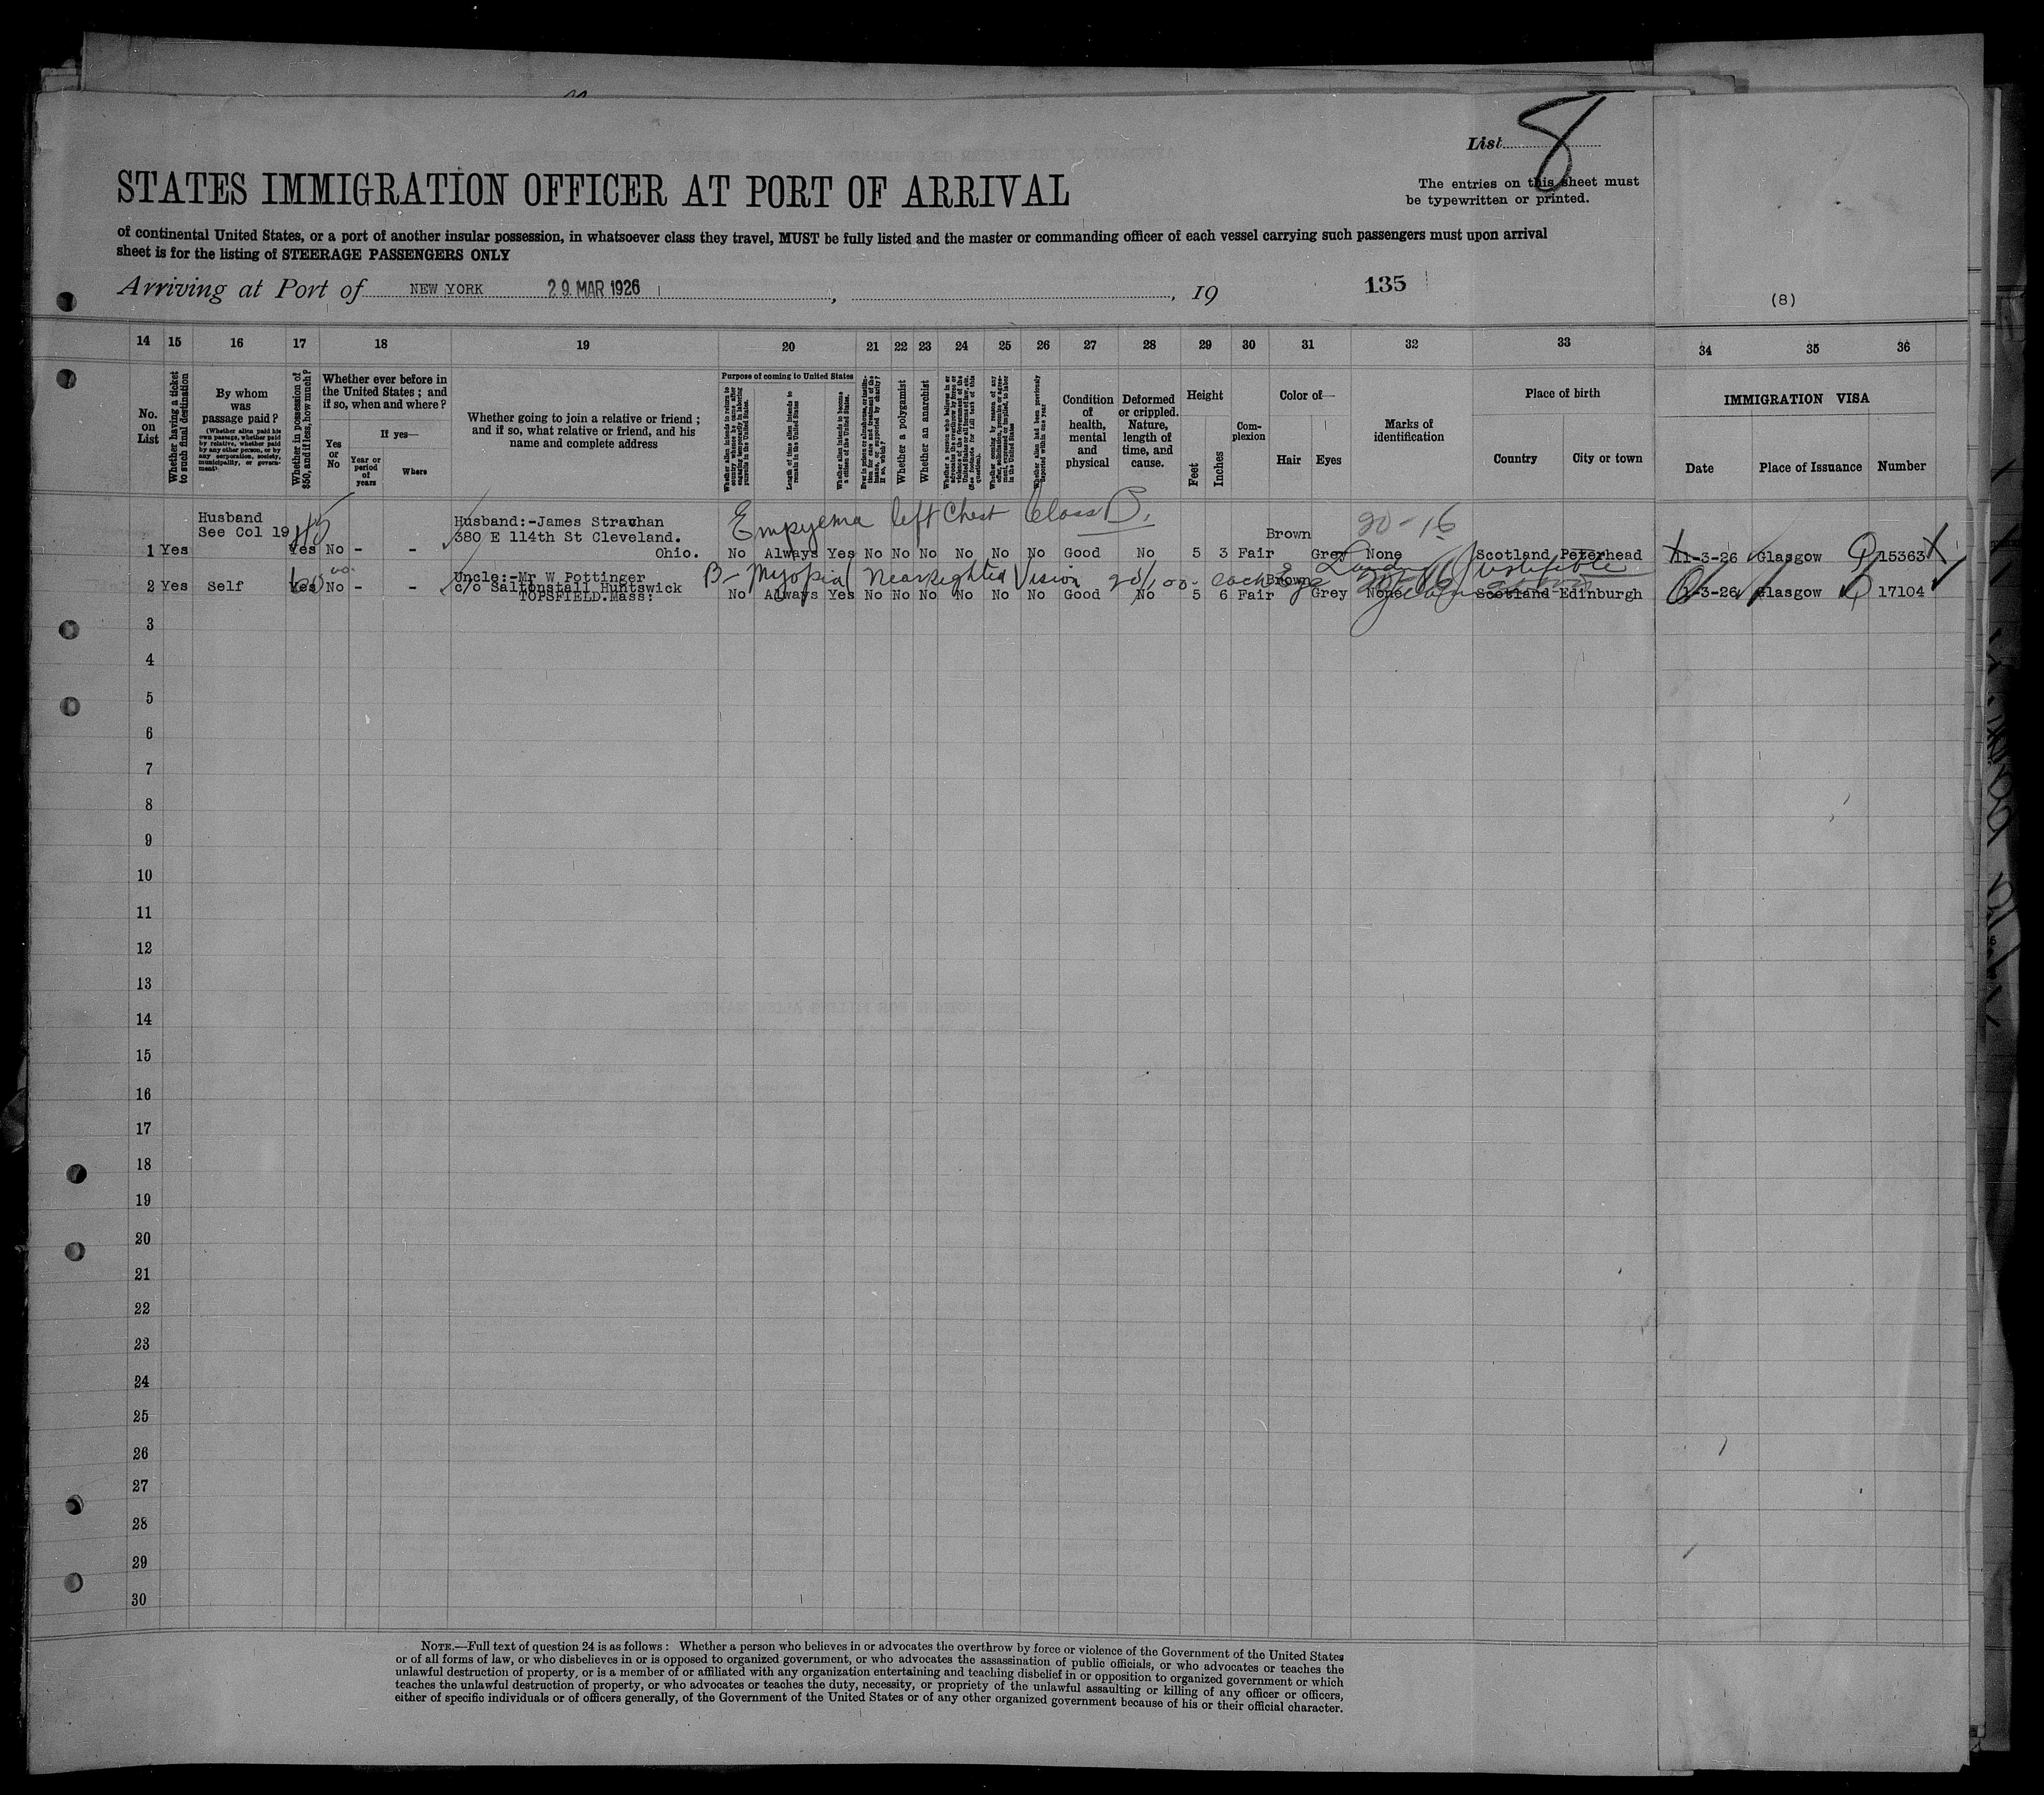 List 8
The entries on this sheet must
be typewritten or printed.
STATES IMMIGRATION OFFICER AT PORT OF ARRIVAL
of continental United States, or a port of another insular possession, in whatsoever class they travel, MUST be fully listed and the master or commanding officer of each vessel carrying such passengers must upon arrival
sheet is for the listing of STEERAGE PASSENGERS ONLY
Arriving at Port of NEW YORK 29 MAR 1926, , 19 135
(8)
14 15 16 17 18 19 20 21 22 23 24 25 26 27 28 29 30 31 32 33 34 35 36
No. on List
Whether having a ticket to such final destination
By whom was passage paid?
(Whether alien paid his own passage, whether paid by relative, whether paid by any other person, or by any corporation, society, municipality, or government)
Whether in possession of $50, and if less, how much?
Whether ever before in the United States; and if so, when and where?
Yes or No
If yes—
Year or period of years
Where
Whether going to join a relative or friend; and if so, what relative or friend, and his name and complete address
Purpose of coming to United States
Whether alien intends to return to country whence he came after engaging temporarily in laboring pursuits in the United States.
Length of time alien intends to remain in the United States
Whether alien intends to become a citizen of the United States.
Whether a polygamist
Whether an anarchist
Condition of health, mental and physical
Deformed or crippled. Nature, length of time, and cause.
Height
Feet
Inches
Complexion
Color of—
Hair
Eyes
Marks of identification
Place of birth
Country
City or town
IMMIGRATION VISA
Date
Place of Issuance
Number
Husband Husband:-James Strachan Empyema left Chest Class B. 20-16
See Col 19 380 E 114th St Cleveland. Brown
1 Yes Yes No - - Ohio. No Always Yes No No No No No No Good No 5 3 Fair Grey None Scotland Peterhead 11-3-26 Glasgow 15363
Uncle:-Mr W Pottinger B- Myopia Nearsighted Vision 20/100 each Eye
2 Yes Self Yes No - - c/o Saltonstall Huntswick Brown
TOPSFIELD.Mass: No Always Yes No No No No No No Good No 5 6 Fair Grey None Scotland Edinburgh -3-26 Glasgow 17104
3
4
5
6
7
8
9
10
11
12
13
14
15
16
17
18
19
20
21
22
23
24
25
26
27
28
29
30
NOTE.—Full text of question 24 is as follows: Whether a person who believes in or advocates the overthrow by force or violence of the Government of the United States
or of all forms of law, or who disbelieves in or is opposed to organized government, or who advocates the assassination of public officials, or who advocates or teaches the
unlawful destruction of property, or is a member of or affiliated with any organization entertaining and teaching disbelief in or opposition to organized government or which
teaches the unlawful destruction of property, or who advocates or teaches the duty, necessity, or propriety of the unlawful assaulting or killing of any officer or officers,
either of specific individuals or of officers generally, of the Government of the United States or of any other organized government because of his or their official character.